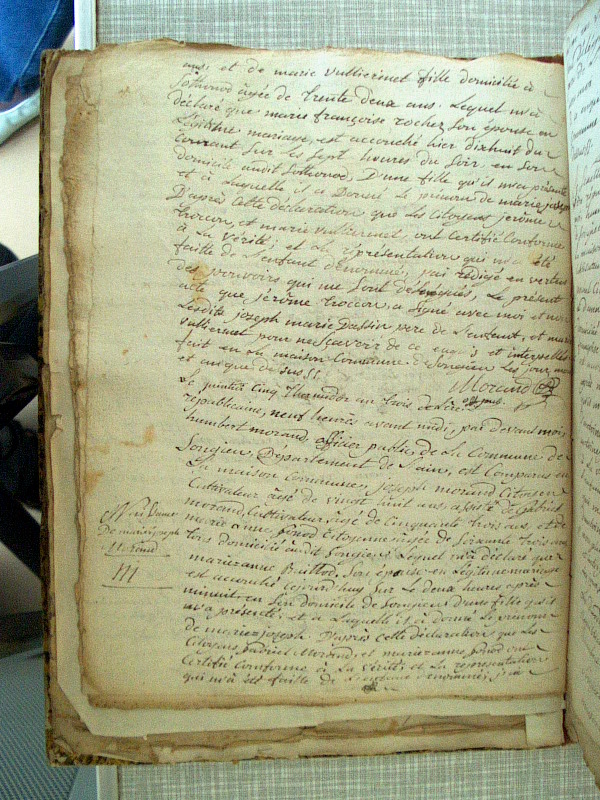 ans. et de marie vulliermet fille domicilié à
Sothonod agée de trente deux ans. Lequel m'a
déclaré que marie françoise rochez son épouse en
Légitime mariage, est accouché hier dixhuit du
courant sur les sept heures du soir en son
domicile audit Sothonod, D'une fille qu'il m'a présenté
et à Laquelle il a Donné le prénom de marie
D'après Cette déclaration que les Citoyens jerôme
trocon, et marie vulliermet, ont Certifié Conforme
à la vérité; et la représentation qui m'a été
faitte de L'enfant dénommé; j'ai rédigé en vertus
des pouvoirs qui me sont délégués, Le présent
acte que jerôme troccon, a signé avec moi et non
Lesdits joseph marie Dassin pere de L'enfant, et marie
vulliermet pour ne sçavoir de ce enquis et interpellés
fait en la maison Commune de Songieu Les jour, mois
et an que dessus.
Morand
Le jourdhui Cinq Thermidor an trois de L'ère
républicaine, neuf heures avant midi, par devant moi
humbert morand, officier public de la Commune de
Songieu, Département de L'ain, est Comparus en
La maison Commune, joseph morand Citoyen
Cultivateur agé de vingt huit ans assité de gabriel
morand, Cultivateur, agé de Cinquante trois ans, et de
marie anne pinod Citoyenne agée de Soixante trois ans
tous domicilié audit Songieu; Lequel m'a déclaré que
marie anne Son épouse en Légitime mariage
est accouché aujourd'huy sur Le deux heures après
minuit en Son domicile de Songieu D'une fille qu'il
m'a présenté; et à Laquelle il a donné le prénoms
de marie joseph. D'après cette déclaration que Les
Citoyens gabriel Morand, et marie anne pinod ont
Certifié Conforme à La vérité, et La représentation
qui m'a été faitte de L'enfant dénommé; j'ai
Naissance
De marie joseph
Morand